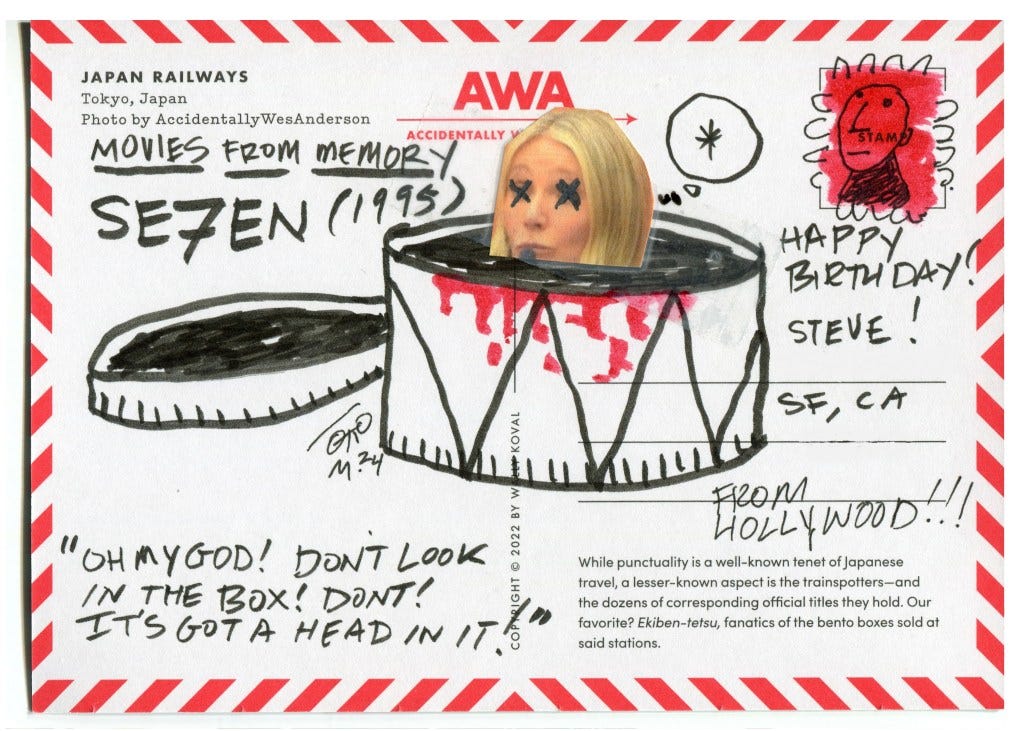 JAPAN RAILWAYS
Tokyo, Japan
Photo by AccidentallyWesAnderson
AWA
ACCIDENTALLY W
STAMP
MOVIES FROM MEMORY
SE7EN (1995)
HAPPY
BIRTHDAY!
STEVE!
SF, CA
FROM
HOLLYWOOD!!!
M.24
"OH MY GOD! DON'T LOOK
IN THE BOX! DONT!
IT'S GOT A HEAD IN IT!"
COPYRIGHT © 2022 BY WALLY KOVAL
While punctuality is a well-known tenet of Japanese
travel, a lesser-known aspect is the trainspotters—and
the dozens of corresponding official titles they hold. Our
favorite? Ekiben-tetsu, fanatics of the bento boxes sold at
said stations.